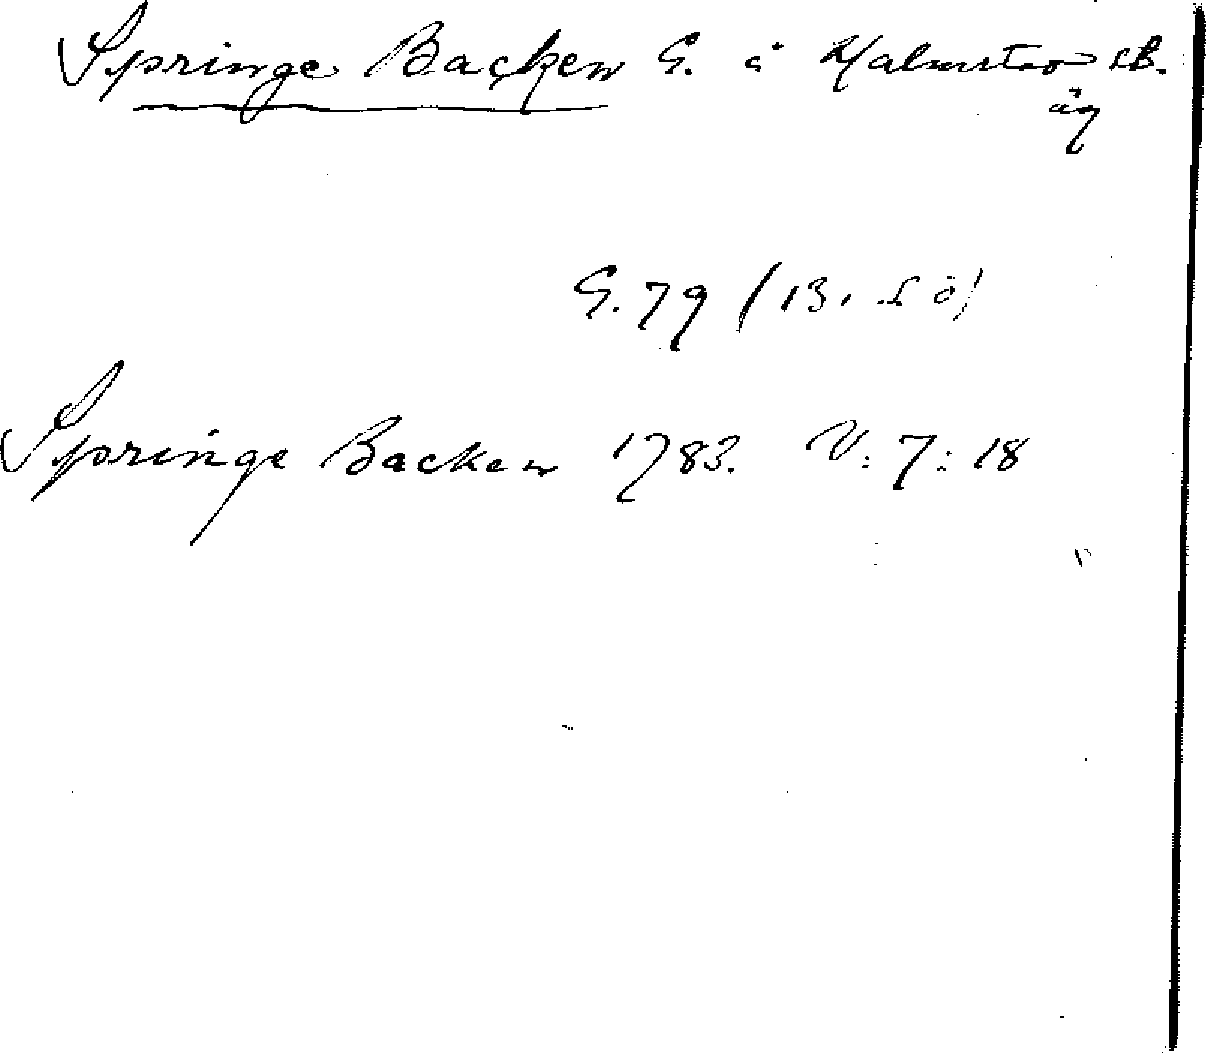 Springe Backen G. å Halmstad sb.
äg
G. 79 (13. sö)
Springe Backen 1783. V: 7: 18